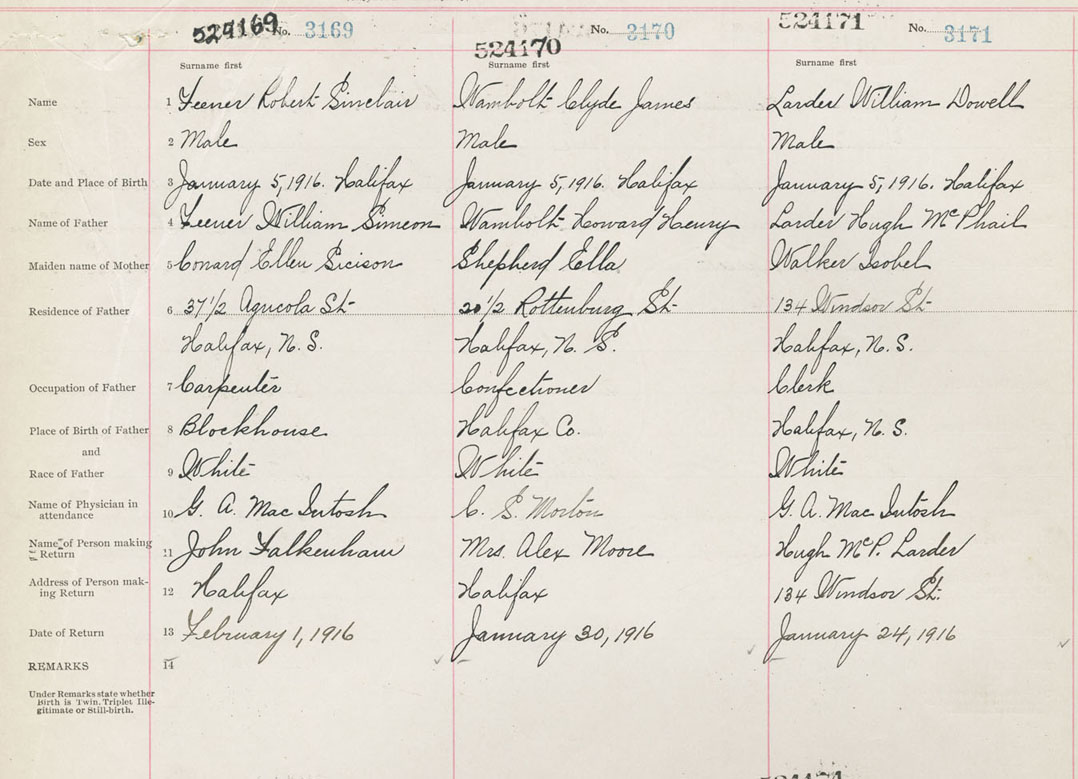 524169 No. 3169
524170 No. 3170
524171 No. 3171
Surname first Surname first Surname first
Name 1 Feener Robert Sinclair Wambolt Clyde James Larder William Dowell
Sex 2 Male Male Male
Date and Place of Birth 3 January 5, 1916. Halifax January 5, 1916. Halifax January 5, 1916. Halifax
Name of Father 4 Feener William Simeon Wambolt Howard Henry Larder Hugh McPhail
Maiden name of Mother 5 Conard Ellen Shepherd Ella Walker Isobel
Residence of Father 6 37 1/2 Agricola St 20 1/2 Rottenburg St 134 Windsor St
Halifax, N.S. Halifax, N.S. Halifax, N.S.
Occupation of Father 7 Carpenter Confectioner Clerk
Place of Birth of Father 8 Blockhouse Halifax Co. Halifax, N.S.
and
Race of Father 9 White White White
Name of Physician in
attendance 10 G. A. MacIntosh C. S. Morton G. A. MacIntosh
Name of Person making
Return 11 John Falkenham Mrs. Alex Moore Hugh McP. Larder
Address of Person mak-
ing Return 12 Halifax Halifax 134 Windsor St.
Date of Return 13 February 1, 1916 January 30, 1916 January 24, 1916
REMARKS 14
Under Remarks state whether
Birth is Twin, Triplet Ille-
gitimate or Still-birth.